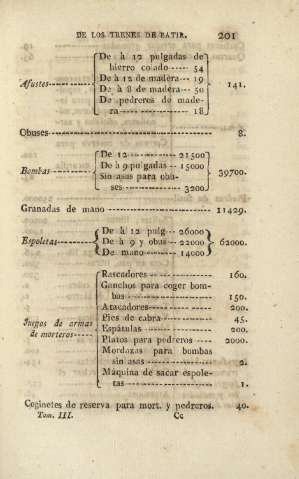 DE LOS TRENES DE BATIR. 201
De à 12 pulgadas de
hierro colado ----- 54
De à 12 de madera -- 19
Afustes ---------- De à 8 de madera -- 50 141.
De pedreros de made-
ra ---------- 18
Obuses ---------- 8.
De 12 ---------- 21500
De à 9 pulgadas -- 15000
Bombas ---------- Sin asas para obu- 39700.
ses ---------- 3200
Granadas de mano ---------- 11429.
De à 12 pulg -- 26000
Espoletas -------- De à 9 y obus -- 22000 62000.
De mano ------ 14000
Rascadores ---------- 160.
Ganchos para coger bom-
bas ---------- 150.
Atacadores ---------- 200.
Juegos de armas Pies de cabra ---------- 45.
de morteros ----- Espátulas ---------- 200.
Platos para pedreros ---- 2000.
Mordazas para bombas
sin asas ---------- 2.
Máquina de sacar espole-
tas ---------- 1.
Coginetes de reserva para mort. y pedreros. 40.
Tom. III. Cc